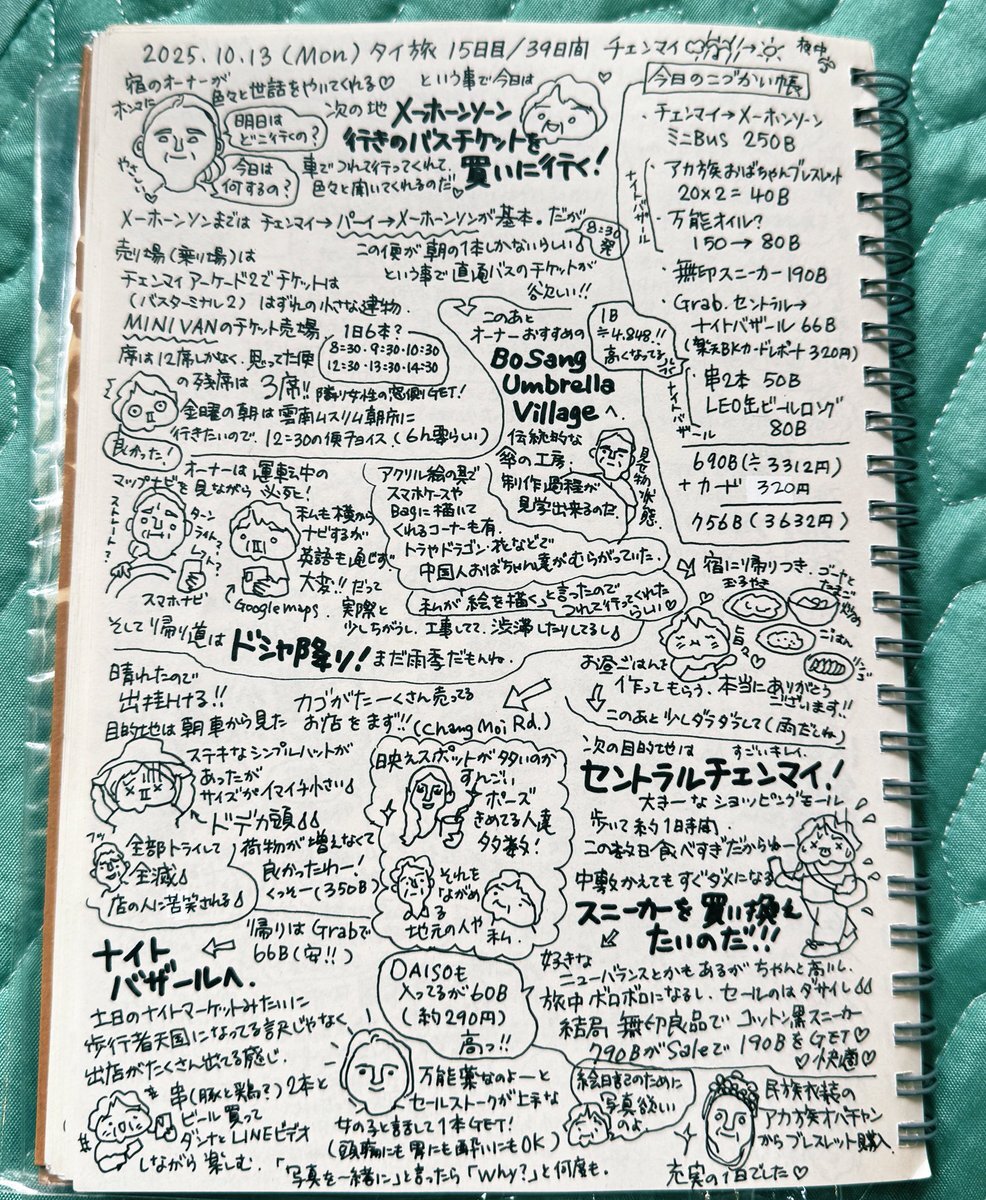 2025.10.13 (Mon) タイ旅 15日目/39日間 チェンマイ → 夜中
宿のオーナーが
ホンマに 色々と世話をやいてくれる♡
明日は
どこ行くの?
今日は
何するの?
やさしい
という事で今日は
次の地 メーホーンソーン
行きのバスチケットを
買いに行く!
車でつれて行ってくれて、
色々と聞いてくれるのだ♡
メーホーンソンまでは チェンマイ→パーイ→メーホーンソンが基本。だが
この便が朝の1本しかないらしい
8:30
発
という事で直通バスのチケットが
欲しい!!
売り場(乗り場)は
チェンマイ アーケード2でチケットは
(バスターミナル2) はずれの小さな建物
MINIVANのチケット売場 1日6本?
8:30・9:30・10:30
12:30・13:30・14:30
席は12席しかなく、思った便
の残席は 3席!! 隣り女性の窓側GET!
金曜の朝は雲南ムスリム朝市に
行きたいので、12:30の便チョイス(6h位らしい)
良かった!
このあと
オーナーおすすめの
BoSang
Umbrella
Villageへ。
1B
≒4.848!!
高くなってる
伝統的な
傘の工房。
制作過程が
見学出来るのだ。
見せ物状態
アクリル絵の具で
スマホケースや
Bagに描いて
くれるコーナーも有。
トラやドラゴン・花などで
中国人おばちゃん達がむらがっていた。
私が「絵を描く」と言ったので
つれて行ってくれた
らしい♡
オーナーは運転中の
マップナビを見ながら必死!
ストレート?
ターン
ライト?
レフト?
スマホナビ
私も横から
ナビするが
英語も通じず
大変!! だって
Googlemaps. 実際と
少しちがうし、工事してて、渋滞したりしてるし
そして帰り道は ドシャ降り! まだ雨季だもんね.
宿に帰りつき、
お昼ごはんを
作ってもらう。本当にありがとう
ございます!!
玉子やき
ゴーヤと
たまご
炒め
ごはん
旨々♡
このあと少しダラダラして(雨だしね)
晴れたので
出掛ける!!
目的地は朝車から見た
カゴがたーくさん売ってる
お店をまず!! (Chang Moi Rd.)
ステキなシンプルハットが
あったが
サイズがイマイチ小さい
ドデカ頭
全部トライして
全滅
フッ
店の人に苦笑される
荷物が増えなくて
良かったわー!
くっそー(350B)
映えスポットが多いのか
すんごい
ポーズ
きめてる人達
多数!
それを
ながめ
る
地元の人や
私.
次の目的地は すごいキレイ.
セントラルチェンマイ!
大きーな ショッピングモール
歩いて約1時間.
この数日食べすぎだからねー
中敷かえてもすぐダメになる
スニーカーを買い換え
たいのだ!!
好きな
ニューバランスとかもあるが ちゃんと高いし、
旅中ボロボロになるし、セールのはダサイし
結局 無印良品で コットン黒スニーカー
790BがSaleで 190BをGET♡
♡快適♡
DAISOも
入ってるが60B
(約290円)
高っ!!
帰りはGrabで
66B(安!!)
ナイト
バザールへ.
土日のナイトマーケットみたいに
歩行者天国になってる訳じゃなく
出店がたくさん出てる感じ.
串(豚と鶏?) 2本と
ビール買って
ダンナとLINEビデオ
しながら 楽しむ.
万能薬なのよーと
セールストークが上手な
女の子と話して1本GET!
(頭痛にも胃にも酔いにもOK)
「写真を一緒に」と言ったら「Why?」と何度も.
絵日記のために
写真欲しい
のよ
民族衣装の
アカ族オバチャン
からブレスレット購入
充実の1日でした♡
今日のこづかい帳
・チェンマイ→メーホンソーン
ミニBus 250B
ナイトバザール
・アカ族おばちゃんブレスレット
20×2=40B
・万能オイル?
150→80B
・無印スニーカー190B
・Grab. セントラル→
ナイトバザール 66B
(楽天BKカードレポート 320円)
ナイトバザール
・串2本 50B
LEO缶ビールロング
80B
690B(≒3312円)
+カード 320円
756B(3632円)